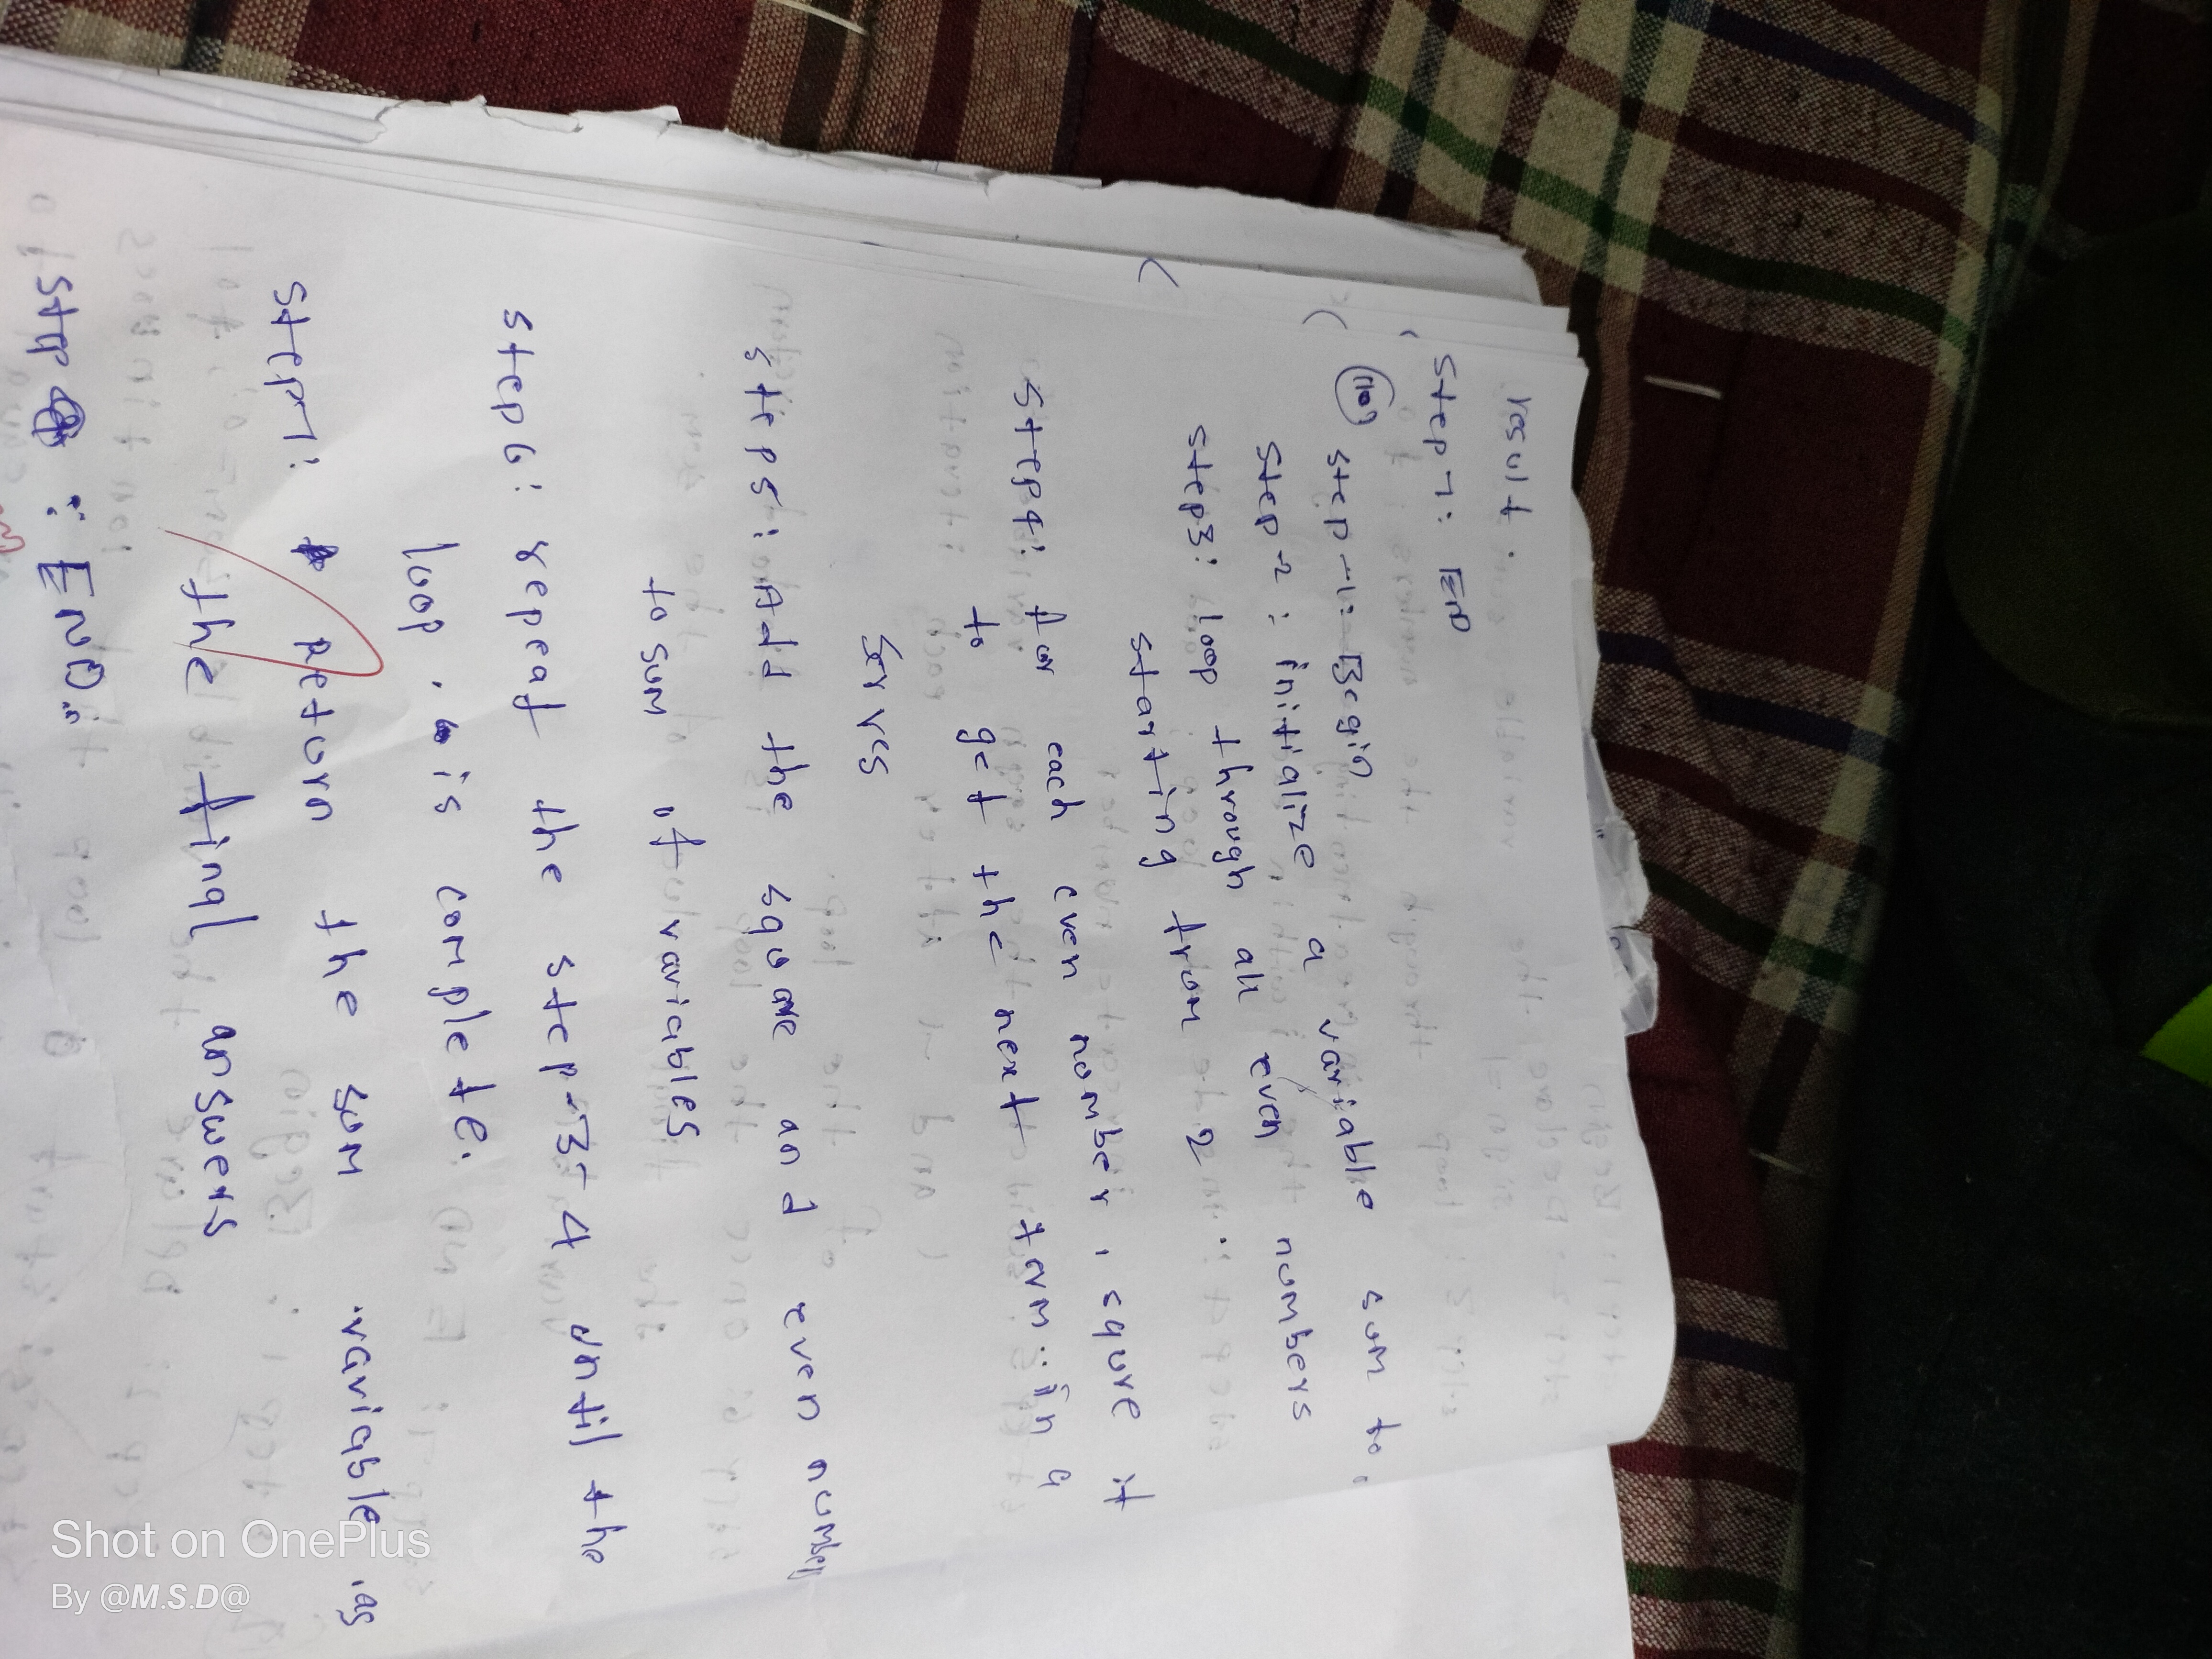 result.
Step 7: END
(10) step-1: Begin
step-2: initialize a variable sum to.
step3: loop through all even numbers
starting from 2
step4: for each even number, squre it
to get the next term.. in a
Serves
step5: Add the square and even number
to sum of variables
step6: repeat the step-3-4 until the
loop. is complete.
step7: Return the sum variable as
the final answers
step : END.
Shot on OnePlus
By @M.S.D@